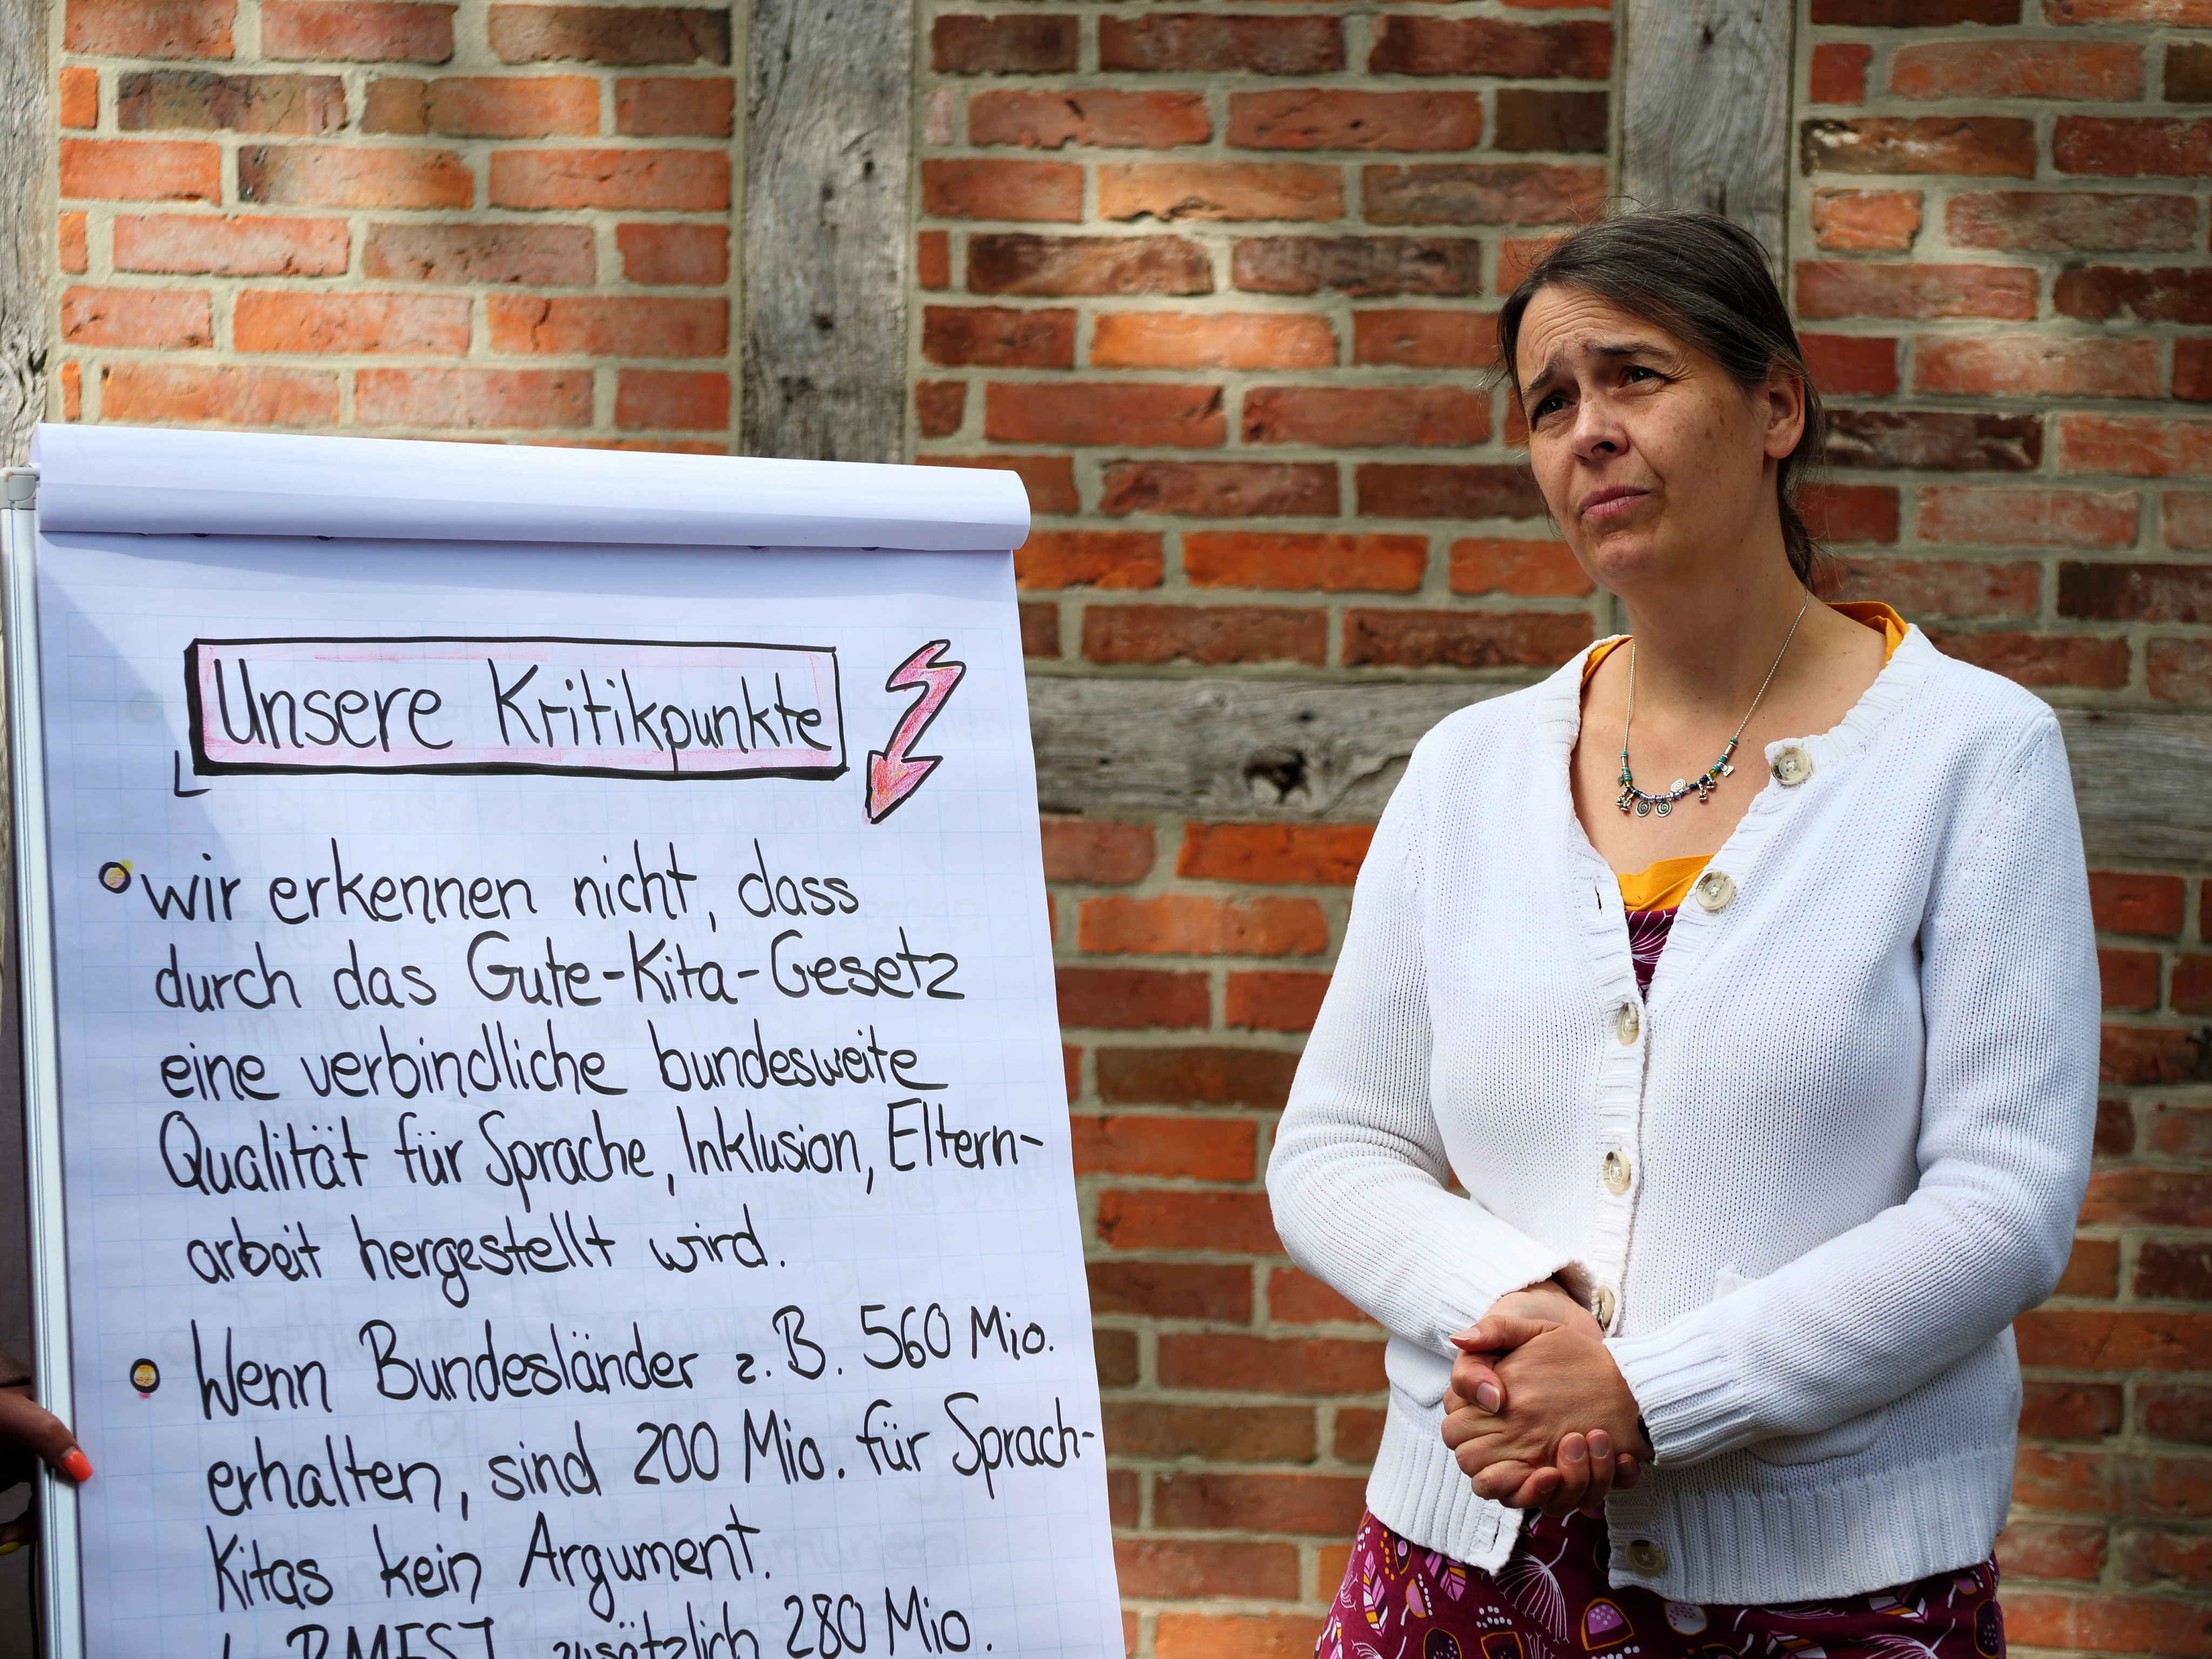 Unsere Kritikpunkte
wir erkennen nicht, dass
durch das Gute-Kita-Gesetz
eine verbindliche bundesweite
Qualität für Sprache, Inklusion, Eltern-
arbeit hergestellt wird.
Wenn Bundesländer z.B. 560 Mio.
erhalten, sind 200 Mio. für Sprach-
Kitas kein Argument.
zusätzlich 280 Mio.